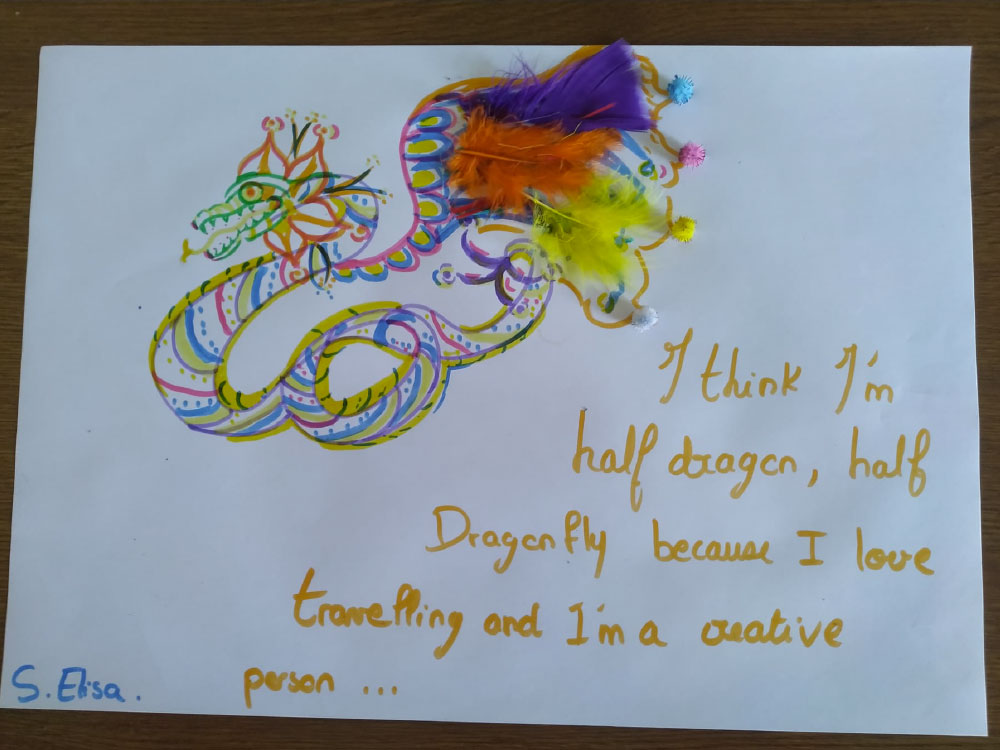 I think I'm
half dragon, half
Dragonfly because I love
travelling and I'm a creative
person ...
S. Elisa.